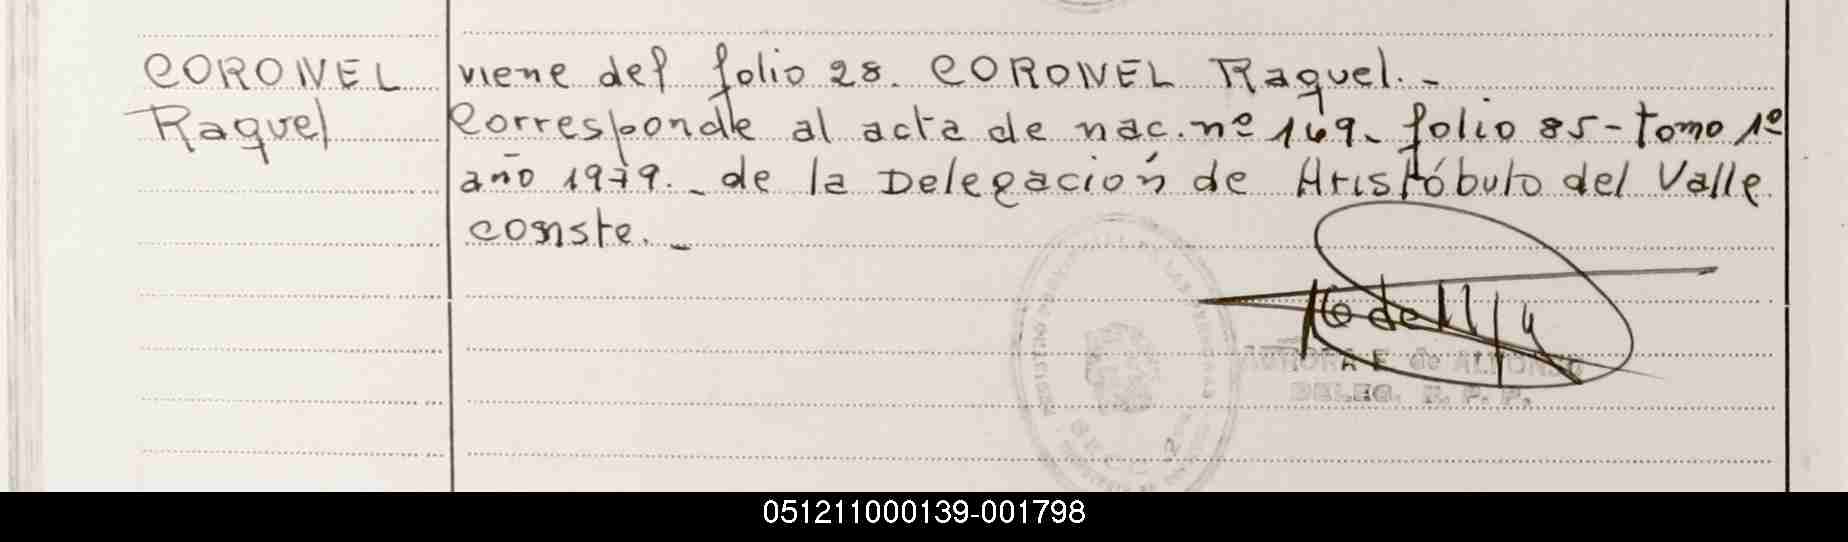 CORONEL
Raquel
viene del folio 28. CORONEL Raquel. -
Corresponde al acta de nac. nº 169. folio 85 - tomo 1º
año 1979. - de la Delegación de Aristóbulo del Valle
conste. -
AURORA E. de ALFONSO
DELEG. R. P. P.
051211000139-001798